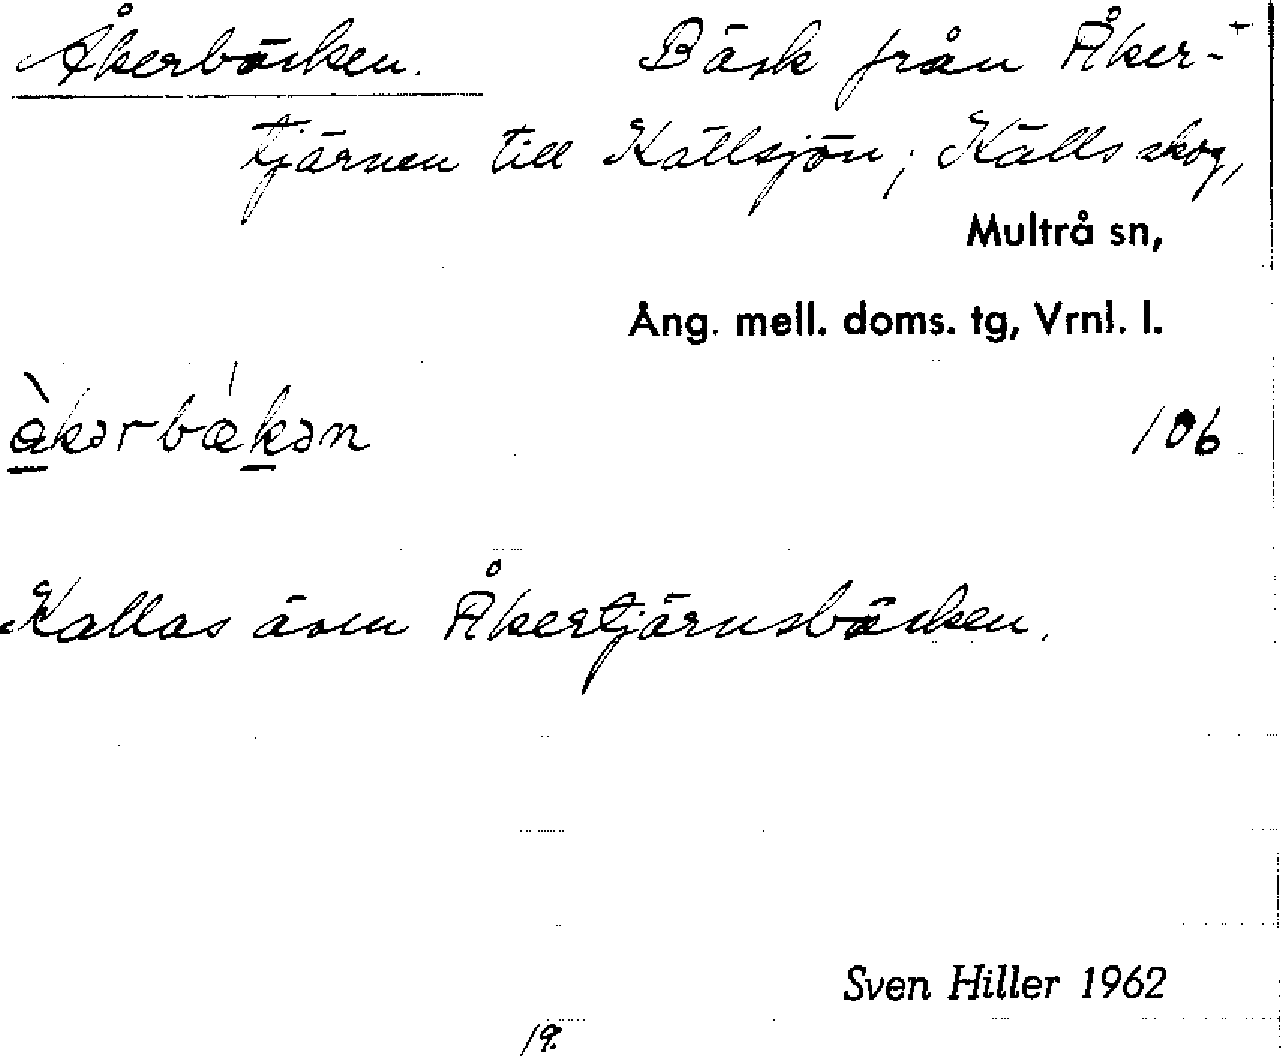 Åkerbäcken. Bäck från Åker-
tjärnen till Källsjön; Källs skog,
Multrå sn,
Ång. mell. doms. tg, Vrnl. l.
106
Kallas även Åkertjärnsbäcken.
Sven Hiller 1962